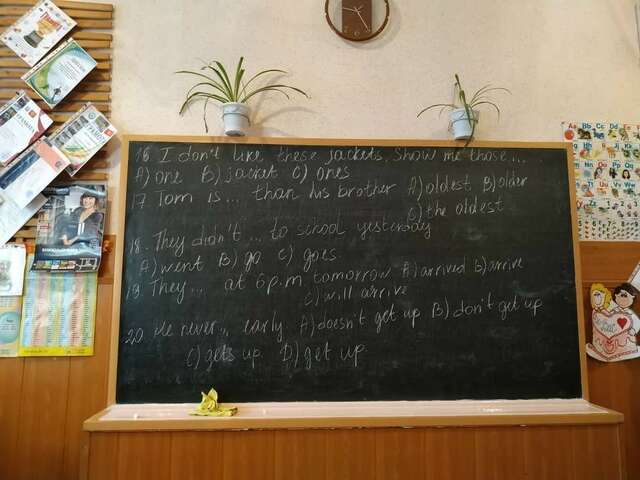 16 I don't like these jackets, show me those...
A) one B) jacket C) ones
17 Tom is ... than his brother A) oldest B) older
C) the oldest
18. They didn't ... to school yesterday
A) went B) go C) goes
19. They ... at 6 p.m. tomorrow A) arrived B) arrive
C) will arrive
20. He never... early A) doesn't get up B) don't get up
C) gets up D) get up